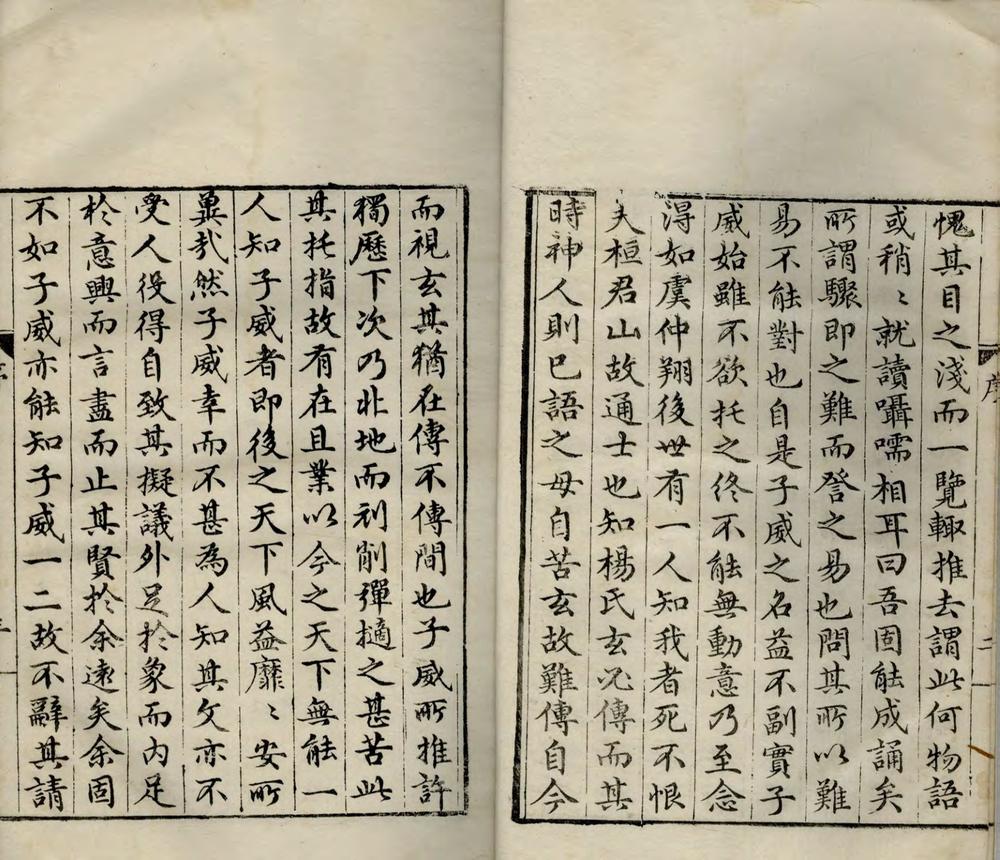 愧其目之淺而一覽輙推去謂此何物語
或稍〻就讀囁嚅相耳曰吾固能成誦矣
所謂驟即之難而登之易也問其所以難
易不能對也自是子威之名益不副實子
威始雖不欲托之終不能無動意乃至念
得如虞仲翔後世有一人知我者死不恨
夫桓君山故通士也知楊氏玄必傳而其
時神人則已語之毋自苦玄故難傳自今
而視玄其猶在傳不傳間也子威所推許
獨歷下次乃北地而刓削彈擿之甚苦此
其托指故有在且業以今之天下無能一
人知子威者即後之天下風益靡〻安所
冀哉然子威幸而不甚為人知其文亦不
受人役得自致其擬議外足於象而內足
於意興而言盡而止其賢於余遠矣余固
不如子威亦能知子威一二故不辭其請
序
二